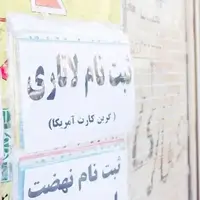 ثبت نام لاتاری
( گرین کارت آمریکا)
ثبت نام نهضت